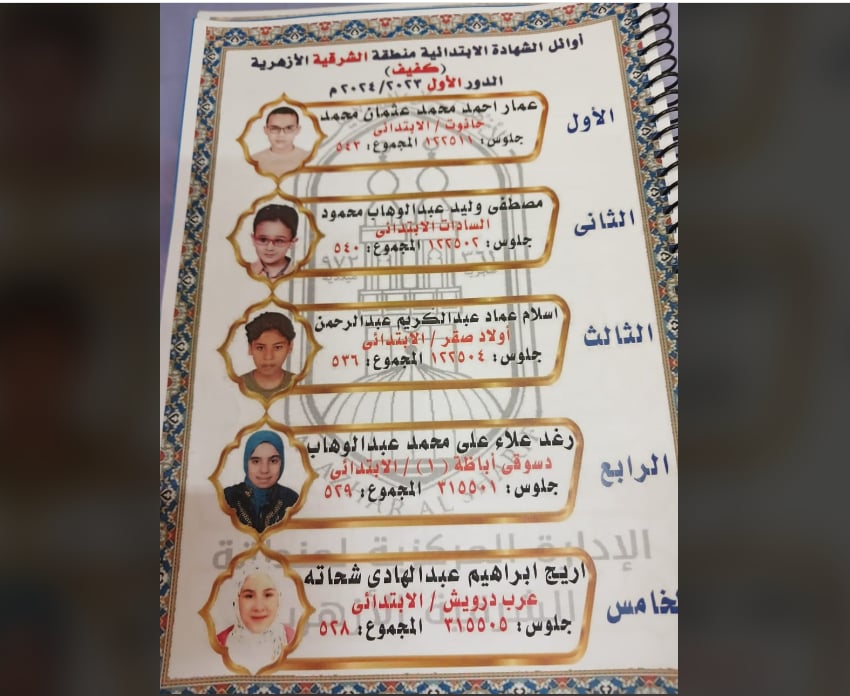 أوائل الشهادة الابتدائية منطقة الشرقية الأزهرية
(كفيف)
الدور الأول ٢٠٢٤/٢٠٢٣م
الأول
عمار احمد محمد عثمان محمد
حانوت / الابتدائى
جلوس: ١٢٢٥١١ المجموع: ٥٤٣
الثانى
مصطفى وليد عبدالوهاب محمود
السادات الابتدائى
جلوس: ١٢٢٥٠٢ المجموع: ٥٤٠
الثالث
اسلام عماد عبدالكريم عبدالرحمن
اولاد صقر / الابتدائى
جلوس: ١٢٢٥٠٤ المجموع: ٥٣٦
الرابع
رغد علاء على محمد عبدالوهاب
دسوقى أباظة (١) / الابتدائى
جلوس: ٣١٥٥٠١ المجموع: ٥٢٩
لخامس
اريج ابراهيم عبدالهادى شحاته
عرب درويش / الابتدائى
جلوس: ٣١٥٥٠٥ المجموع: ٥٢٨
الإدارة المركزية لمنطقة